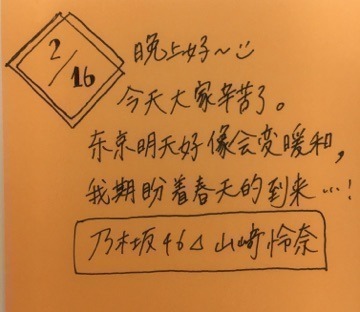 2/16
晚上好～
今天大家辛苦了。
东京明天好像会变暖和,
我期盼着春天的到来…!
乃木坂46⊿山崎怜奈